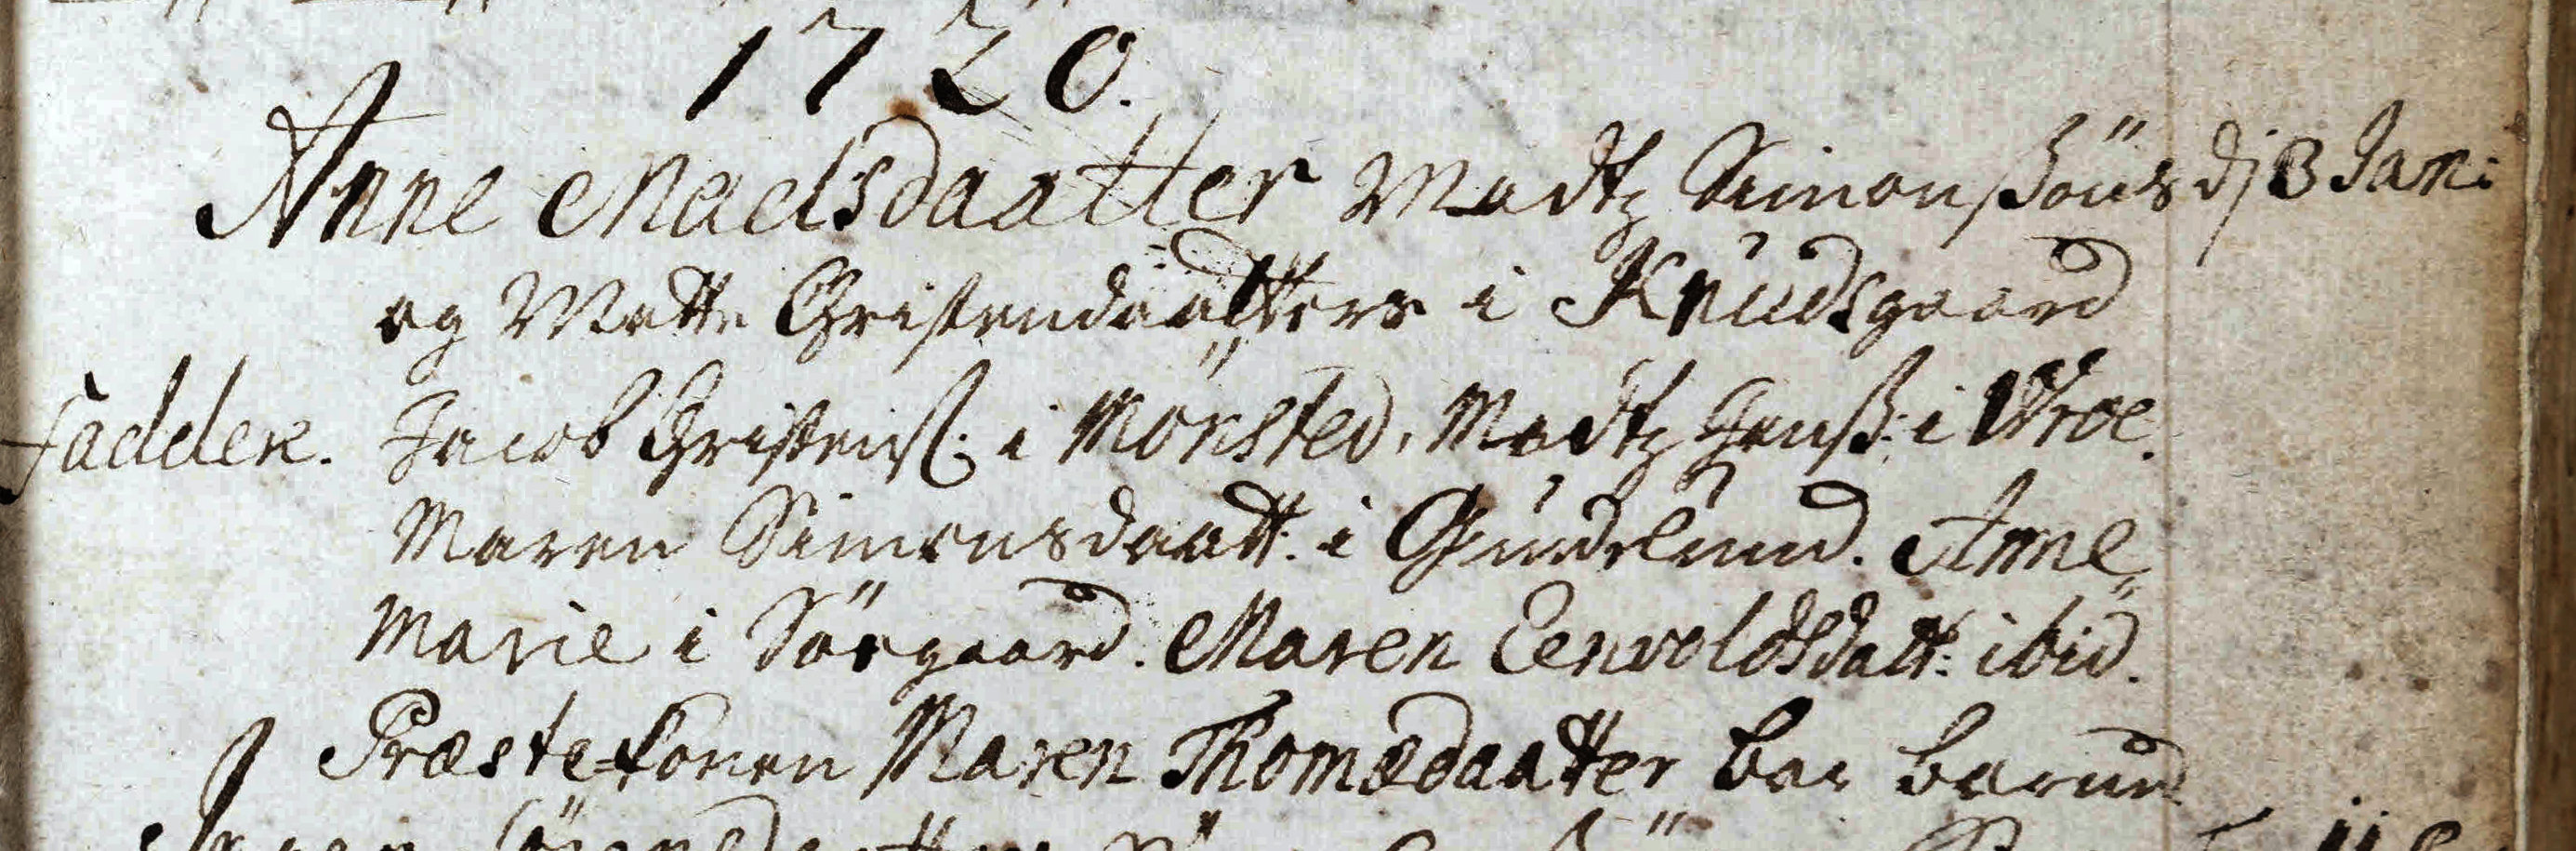 1720.
Anne Madsdaatter Madtz Simonßöns dj 3 Jan:
og Mette Christensdaatters i Knudsgaard
Faddere. Jacob Christenß: i Mönsted, Madtz Jenß: i Wroe.
Maren Simonsdaatt: i Gundelund. Anne
Marie i Söegaard. Maren Eenvoldsdatt: ibid.
Præste-konen Maren Thomædaatter bar barned